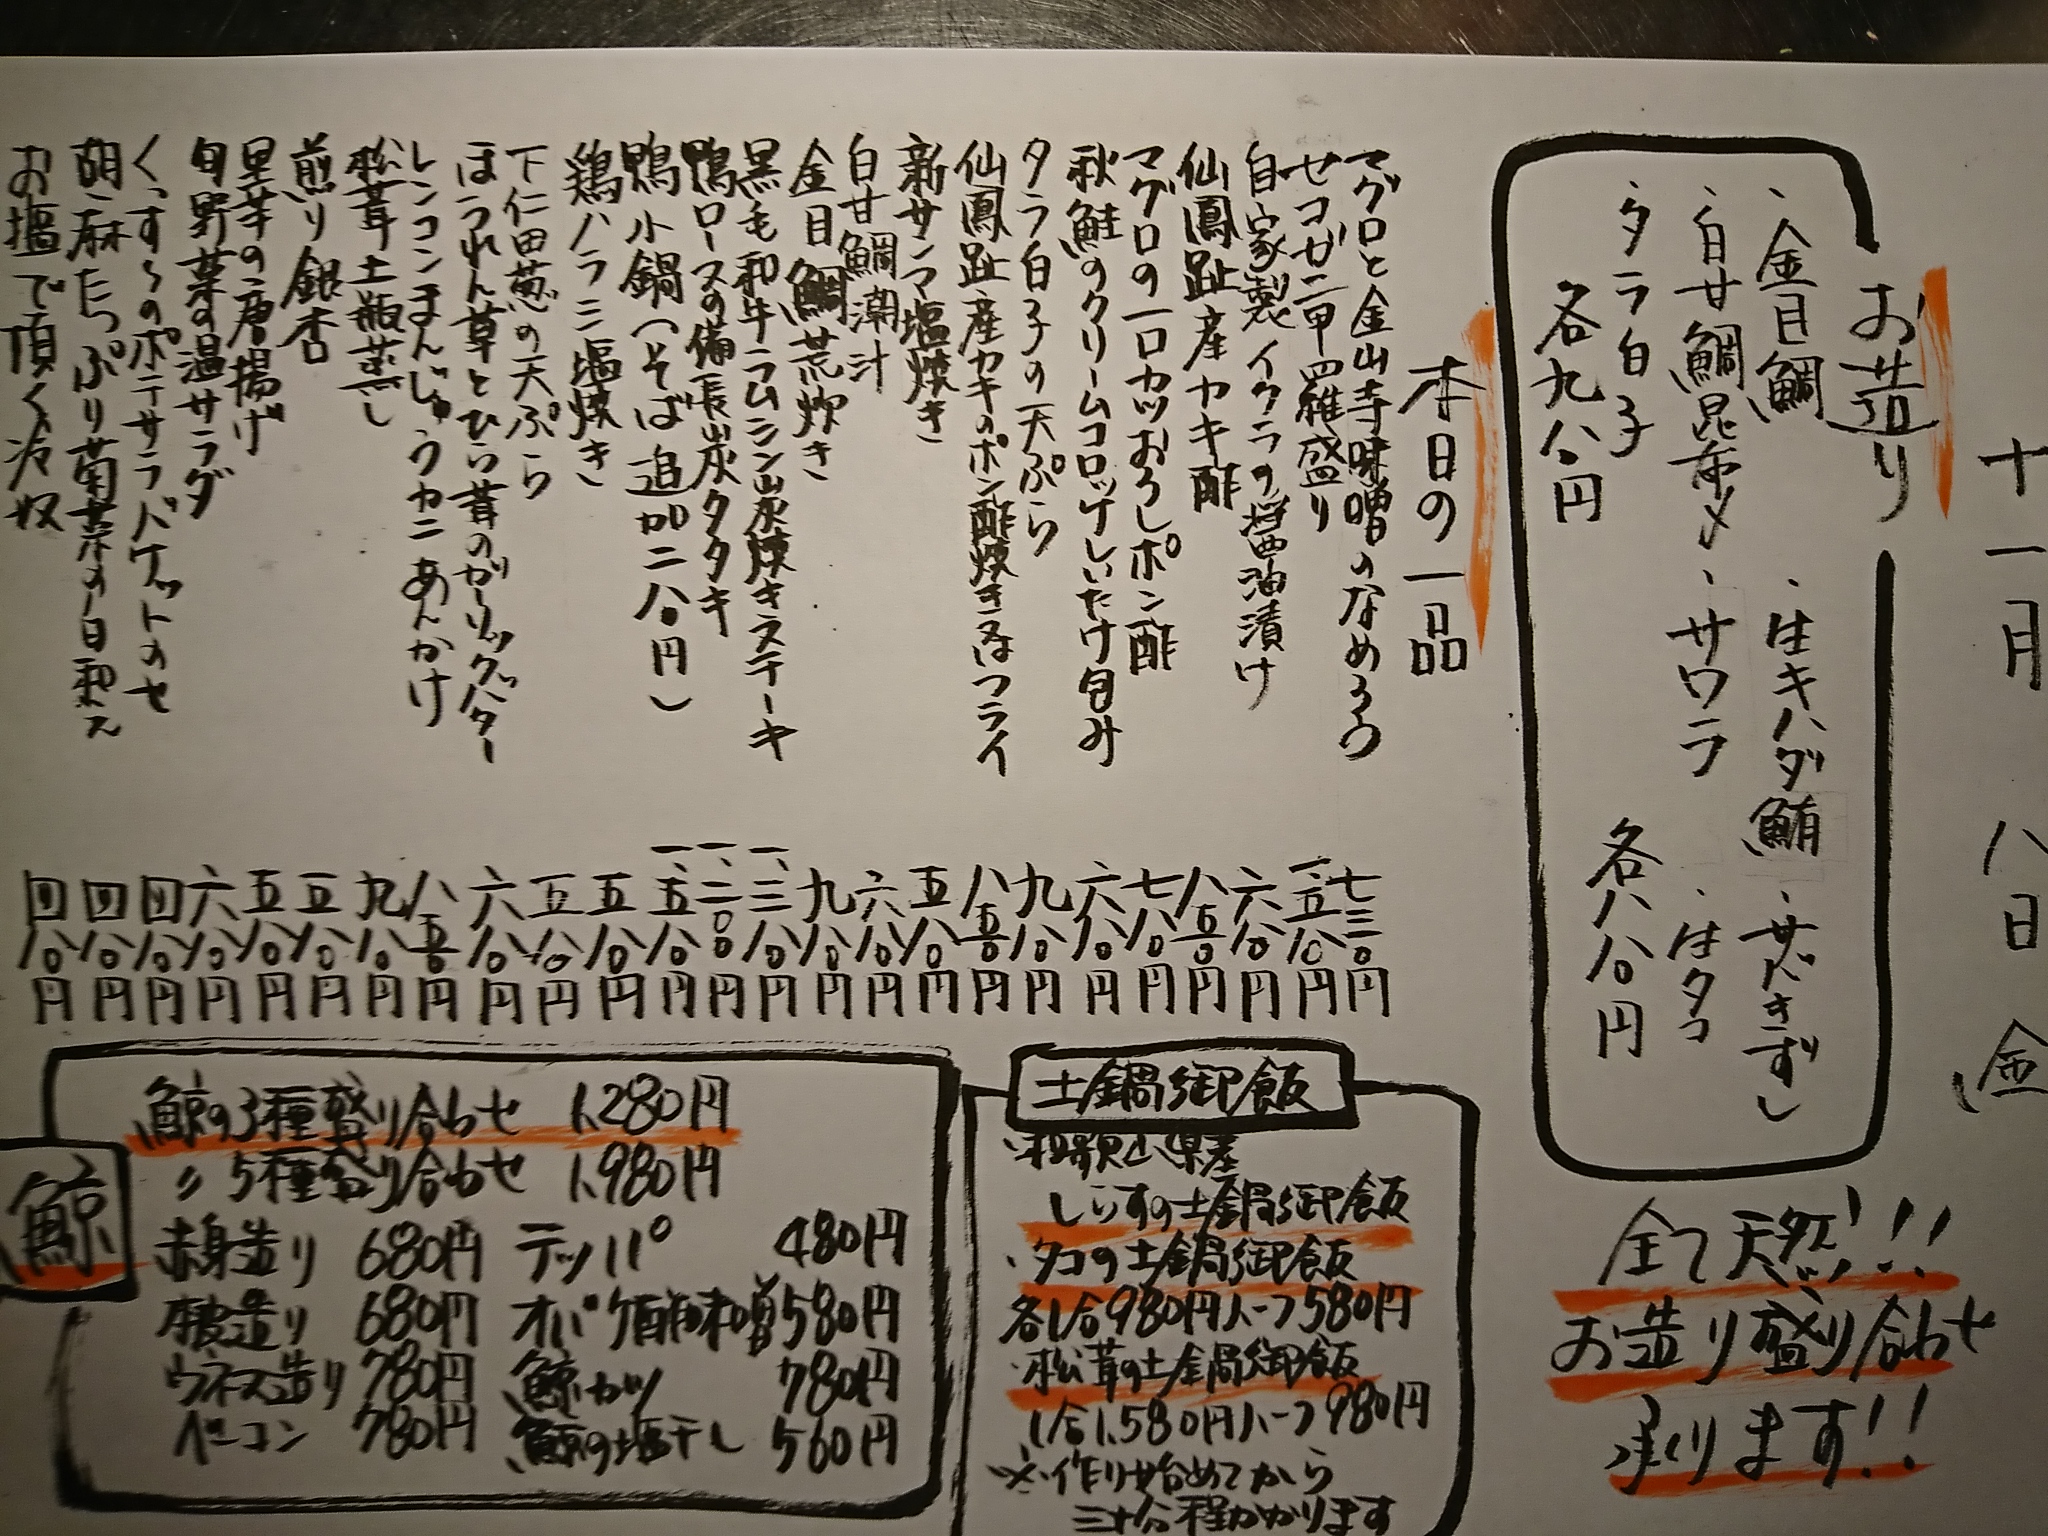 十一月 八日 金
お造り
・金目鯛 ・生キハダ鮪 ・サバきずし
・白甘鯛昆布〆 ・サワラ ・生タコ
・タラ白子 各八八〇円
各九八〇円
全て天然!!!
お造り盛り合わせ
承ります!!
本日の一品
マグロと金山寺味噌のなめろう 七三〇円
セコガニ甲羅盛り 一、五八〇円
自家製イクラの醤油漬け 六八〇円
仙鳳趾産カキ酢 八五〇円
マグロの一口カツおろしポン酢 七八〇円
秋鮭のクリームコロッケしいたけ包み 六八〇円
タラ白子の天ぷら 九八〇円
仙鳳趾産カキのポン酢焼き又はフライ 八五〇円
新サンマ塩焼き 五八〇円
白甘鯛潮汁 六八〇円
金目鯛荒炊き 九八〇円
黒毛和牛ラムシン炭焼きステーキ 一、三八〇円
鴨ロースの備長炭タタキ 一、二〇〇円
鴨小鍋(そば追加二八〇円) 一、五八〇円
鶏ハラミ塩焼き 五八〇円
下仁田葱の天ぷら 五八〇円
ほうれん草とひら茸のガーリックバター 六八〇円
レンコンまんじゅうカニあんかけ 八五〇円
松茸土瓶蒸し 九八〇円
煎り銀杏 五八〇円
里芋の唐揚げ 五八〇円
旬野菜の温サラダ 六八〇円
くっす～のポテサラバケットのせ 四八〇円
胡麻たっぷり菊菜の白和え 四八〇円
お塩で頂く冷奴 四八〇円
土鍋御飯
・和歌山県産
しらすの土鍋御飯
・タコの土鍋御飯
各1合980円ハーフ580円
・松茸の土鍋御飯
1合1,580円ハーフ980円
※作り始めてから
三十分程かかります
鯨
鯨の3種盛り合わせ 1,280円
〃 5種盛り合わせ 1,980円
赤身造り 680円 テッパ 480円
本皮造り 680円 オバケ酢味噌 580円
ウネス造り 780円 鯨カツ 780円
ベーコン 780円 鯨の塩干し 560円